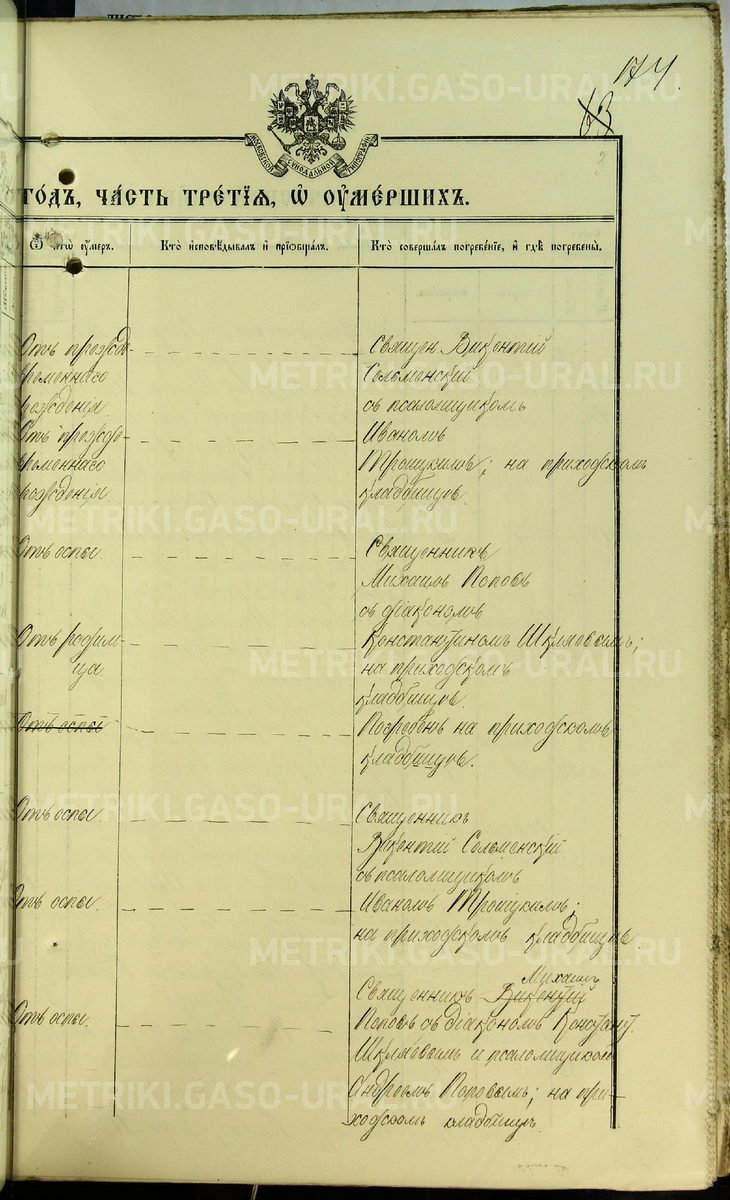 174
63
МОСКОВСКОЙ СѴНОДАЛЬНОЙ ТИПОГРАФІИ
ГОДЪ, ЧАСТЬ ТРЕТІЯ, Ѡ ОУМЕРШИХЪ.
Ѿ чегѡ оумеръ.
Кто исповѣдывалъ и пріобщалъ.
Кто совершалъ погребеніе, и гдѣ погребены.
Отъ преждевременнаго
рожденія
Священ Викентий
Сельменский
съ псаломщикомъ
Отъ преждевременнаго
рожденія
Иваномъ
Трошкинъ; на приходскомъ
кладбищѣ.
Отъ оспы
Священникъ
Михаилъ Поповъ
съ діакономъ
Отъ родимца.
Константиномъ Шкляевымъ;
на приходскомъ
кладбищѣ.
Отъ оспы
Погребенъ на приходскомъ
кладбищѣ.
Отъ оспы
Священникъ
Викентий Сельменский
съ псаломщикомъ
Отъ оспы.
Иваномъ Трошкинъ;
на приходскомъ кладбищѣ.
Михаилъ
Священникъ Викентий
Отъ оспы.
Поповъ съ діакономъ Констант.
Шкляевымъ и псаломщикомъ
Андреемъ Поповымъ; на при-
ходскомъ кладбищѣ.
METRIKI.GASO-URAL.RU